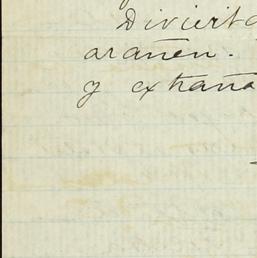 Diviert
arañen.
y extraña